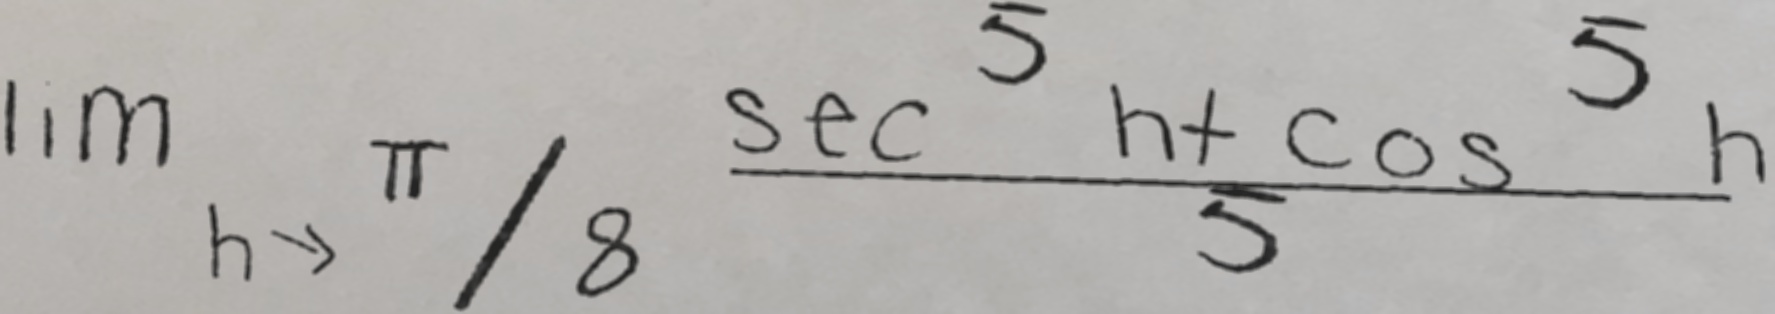 lim h→π/8 (sec^5 h + cos^5 h)/5